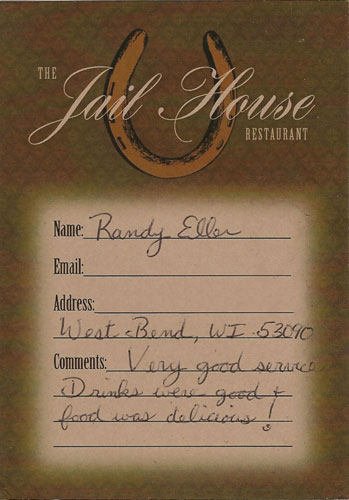 THE
Jail House
RESTAURANT
Name: Randy Eller
Email:
Address:
West Bend, WI 53090
Comments: Very good service
Drinks were good &
food was delicious!